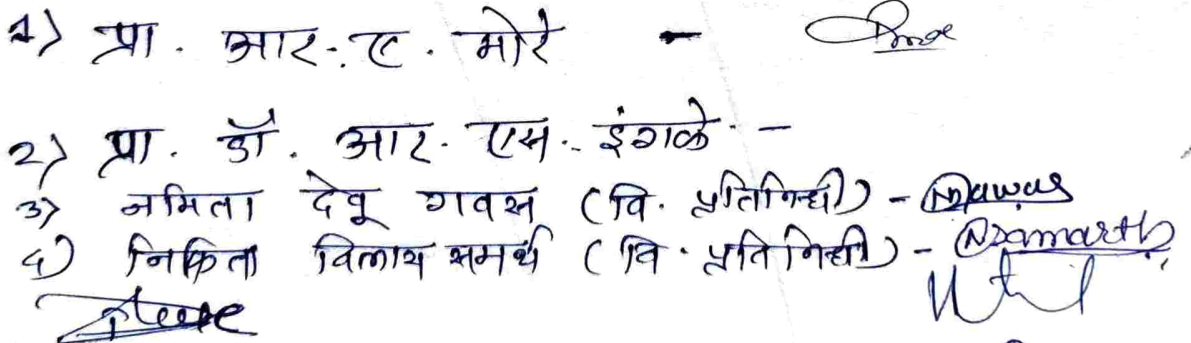 1) प्रा. आर. ए. मोरे -
2) प्रा. डॉ. आर. एस. इंगळे -
3) नमिता देवू गवस (वि. प्रतिनिधी) - NDawas
4) निकिता विलास समर्थ (वि. प्रतिनिधी) - NSamarth